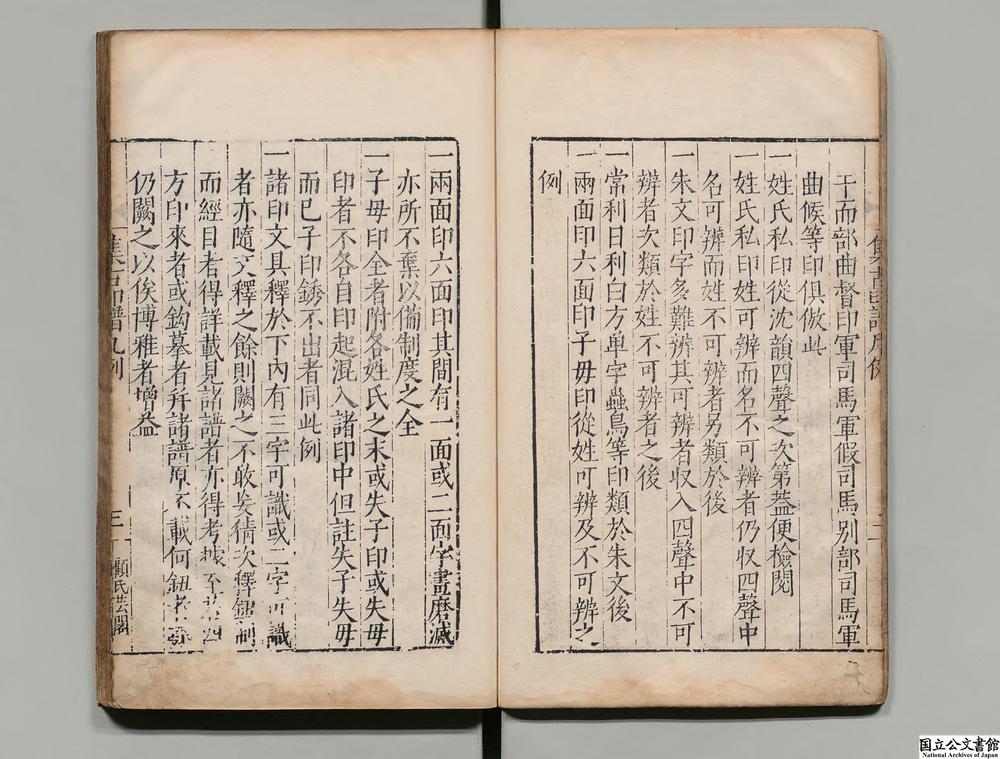 干而部曲督印軍司馬軍假司馬别部司馬軍
曲候等印俱倣此
一姓氏私印從沈韻四聲之次第蓋便檢閱
一姓氏私印姓可辨而名不可辨者仍収四聲中
名可辨而姓不可辨者另類於後
一朱文印字多難辨其可辨者収入四聲中不可
辨者次類於姓不可辨者之後
一常利日利白方单字蟲鳥等印類於朱文後
一兩面印六面印子毋印從姓可辨及不可辨之
例
一兩面印六面印其間有一面或二面字畫磨滅
亦所不棄以備制度之全
一子毋印全者附各姓氏之末或失子印或失毋
印者不各自印起混入諸印中但註失子失毋
而已子印銹不出者同此例
一諸印文具釋於下內有三字可識或二字可識
者亦隨文釋之餘則闕之不敢妄猜次釋鈕制
而經目者得詳載見諸譜者亦得考據至若四
方印來者或鈎摹者并諸譜原不載何鈕者
仍闕之以俟博雅者增益
集古印譜凡例
三
顧氏芸閣
國立公文書館
National Archives of Japan